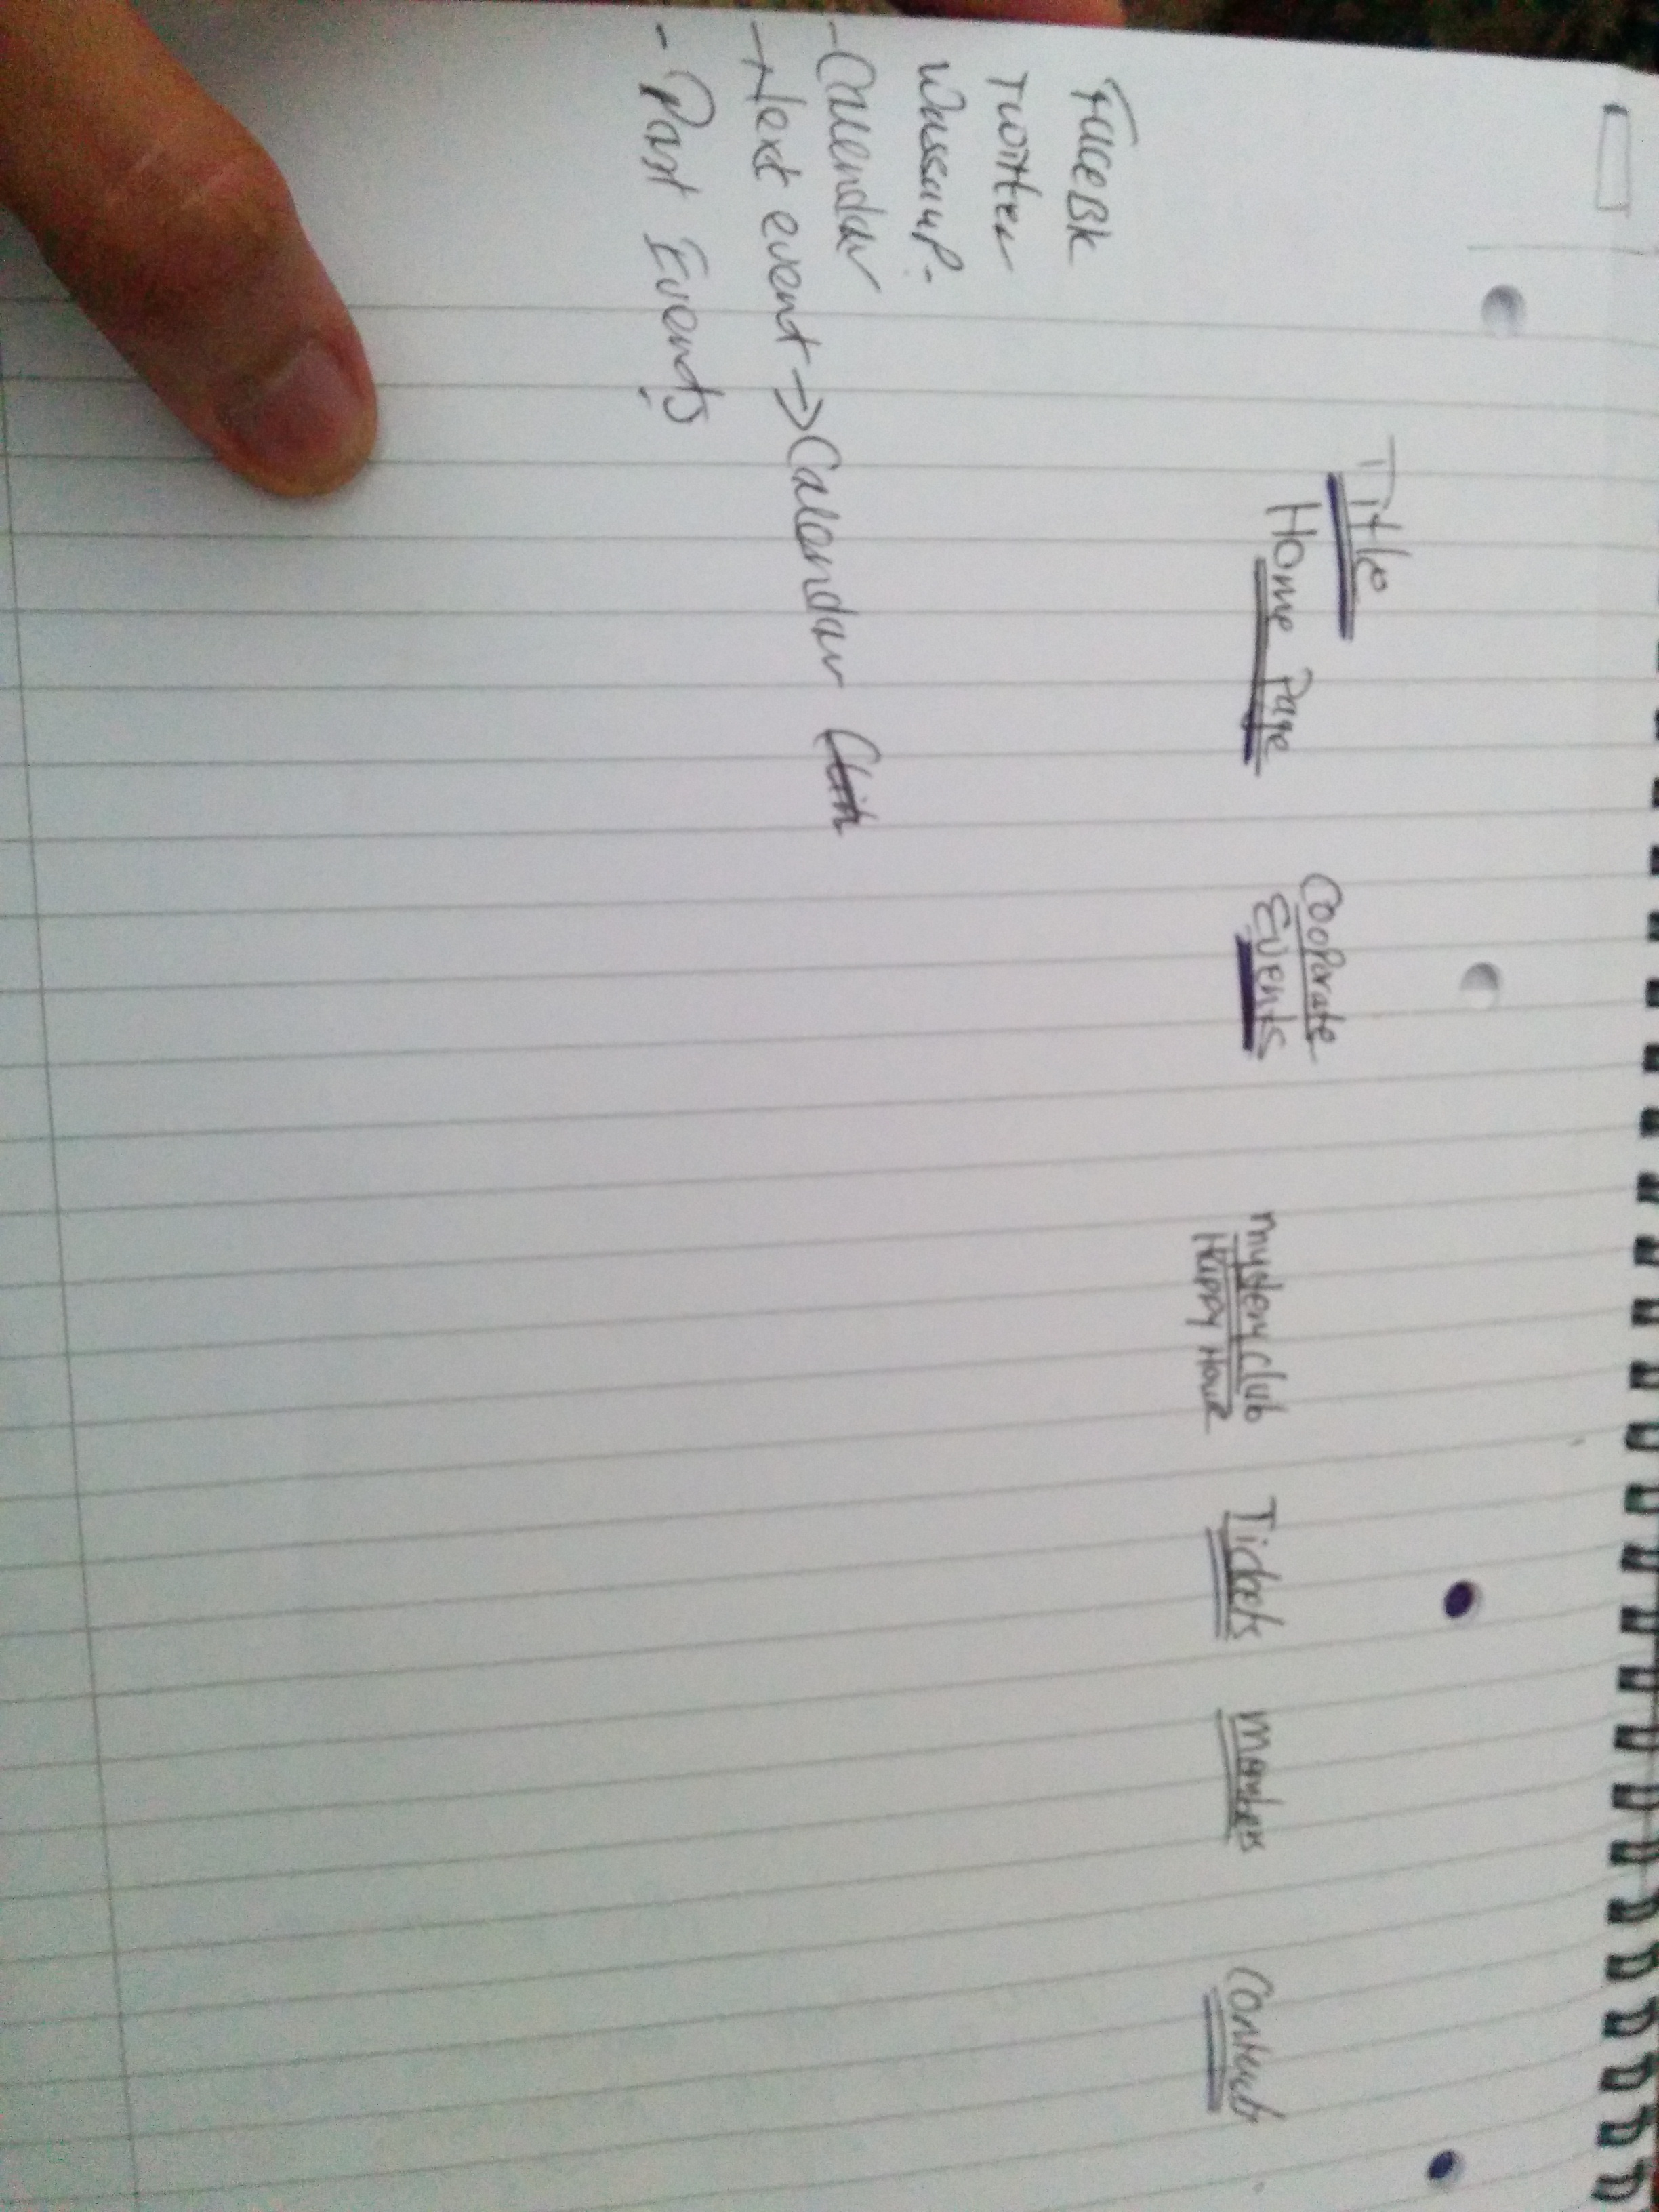 Title
Home Page
Cooporate
Events
mystery club
Happy Hour
Tickets
Members
FaceBk
Twitter
Wassaup.
- Calendar
- Next event → Calendar
- Past Events